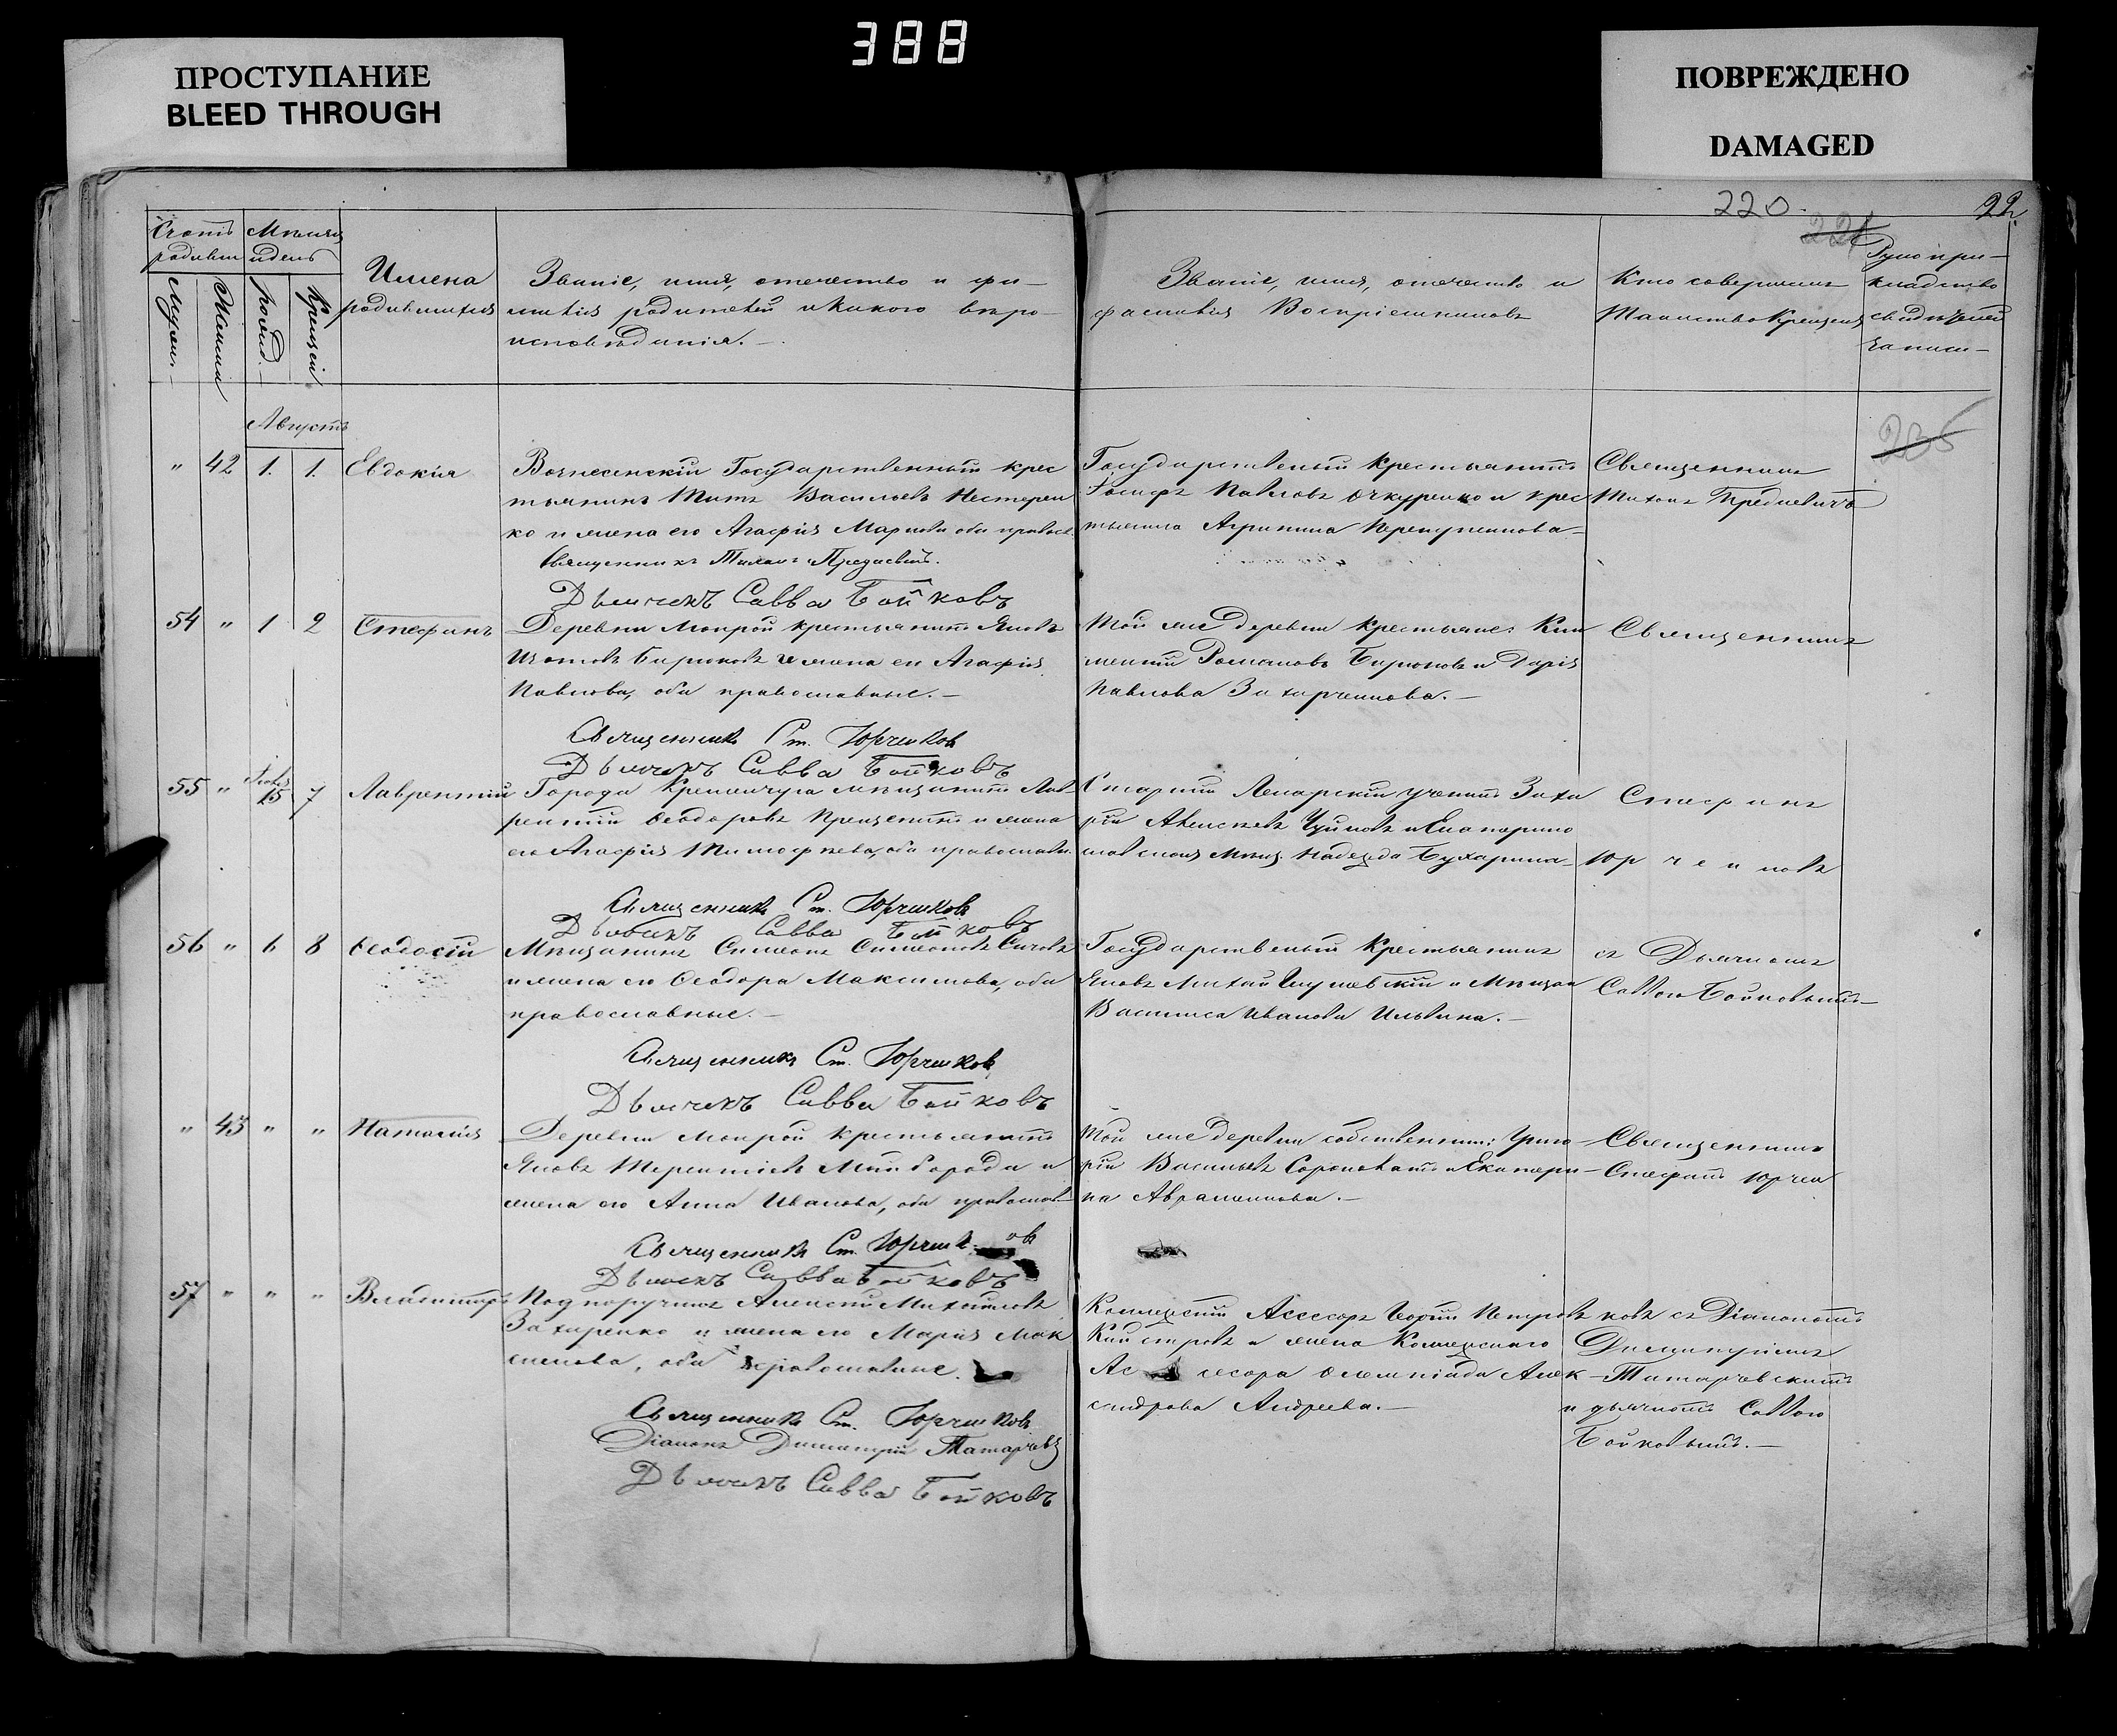 388
ПРОСТУПАНИЕ
BLEED THROUGH
ПОВРЕЖДЕНО
DAMAGED
220.
221
22
Счетъ родивш
Мѣсяцъ и день
Мужск.
Женска
рожд.
Крещенія
Имена
родившихся
Званіе, имя, отечество и фа-
милія родителей и какого вѣро-
исповѣданія.—
Званіе, имя, отечество и
фамилія Воспріемниковъ
Кто совершалъ
Таинство Крещенія
Рукопри-
кладство
свидѣтелей
записи—
Августъ
235
" 42 1. 1. Евдокія
Вознесенскій Государственный крес
тьянинъ Титъ Васильевъ Нестерен
ко и жена его Агафія Маркова оба правосл.
Священникъ Тихонъ
Дьячекъ Савва Бойковъ
Государственный крестьянинъ
Іосифъ Павловъ Очкуренко и крес
тьянка Агрипина
Священникъ
Тихонъ
54 " 1 2 Стефанъ
Деревни Мокрой крестьянинъ Яковъ
Изотовъ Бирюковъ и жена его Агафія
Павлова, оба православные.—
Священникъ Ст. Юрченковъ
Дьячекъ Савва Бойковъ
Той же деревни крестьяне: Кли
ментій Романовъ Бирюковъ и Дарія
Павлова Захарченкова.—
Священникъ
55 " 15 7 Лаврентій
Города Кременчуга мѣщанинъ Лав-
рентій Ѳеодоровъ и жена
его Агафія Тимофѣева, оба православн.
Священникъ Ст. Юрченковъ
Дьячекъ Савва Бойковъ
Старшій Лекарскій ученикъ Заха
рій Алексѣевъ и Екатерино
славская мѣщ. Надежда Бухарина—
Стефанъ
Юрченковъ
56 " 6 8 Ѳеодосій
Мѣщанинъ Симеонъ Симеоновъ Сичовъ
и жена его Ѳеодора Максимова, оба
православные.—
Священникъ Ст. Юрченковъ
Дьячекъ Савва Бойковъ
Государственный Крестьянинъ
Яковъ и Мѣщан
Василиса Иванова Ильина.—
съ Дьячкомъ
Саввою Бойковымъ—
" 43 " " Наталія
Деревни Мокрой крестьянинъ
Яковъ Терентіевъ Майборода и
жена его Анна Иванова, оба православ—
Священникъ Ст. Юрченк овъ
Дьячекъ Савва Бойковъ
Той же деревни собственник: Григо-
рій Васильевъ и Екатери-
на Авраменкова.—
Священникъ
Стефанъ Юрчен
57 " " " Владиміръ
Подпоручикъ Алексѣй Михайловъ
Захаренко и жена его Марія Мак
симова, оба православные.
Священникъ Ст. Юрченковъ
Діаконъ Димитрій Татарчев
Дьячекъ Савва Бойковъ
Коллежскій Асессоръ Георгій Петровъ
и жена Коллежскаго
Ас сесора Олимпіада Алек-
сандрова Андреева.—
ковъ съ Діакономъ
Димитріемъ
Татарчевскимъ
и дьячкомъ Саввою
Бойковымъ.—